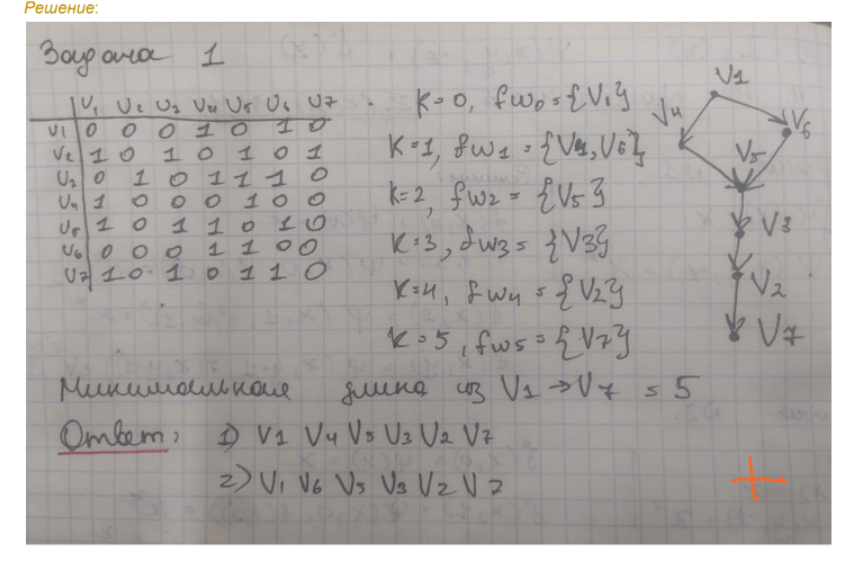 Решение:
Задача 1
V1 V2 V3 V4 V5 V6 V7
V1 0 0 0 1 0 1 0
V2 1 0 1 0 1 0 1
V3 0 1 0 1 1 1 0
V4 1 0 0 0 1 0 0
V5 1 0 1 1 0 1 0
V6 0 0 0 1 1 0 0
V7 1 0 1 0 1 1 0
K=0, fw0={V1}
K=1, fw1={V4,V6}
K=2, fw2={V5}
K=3, fw3={V3}
K=4, fw4={V2}
K=5, fw5={V7}
V1
V4
V6
V5
V3
V2
V7
Минимальная длина из V1→V7 = 5
Ответ: 1) V1 V4 V5 V3 V2 V7
2) V1 V6 V5 V3 V2 V7
+